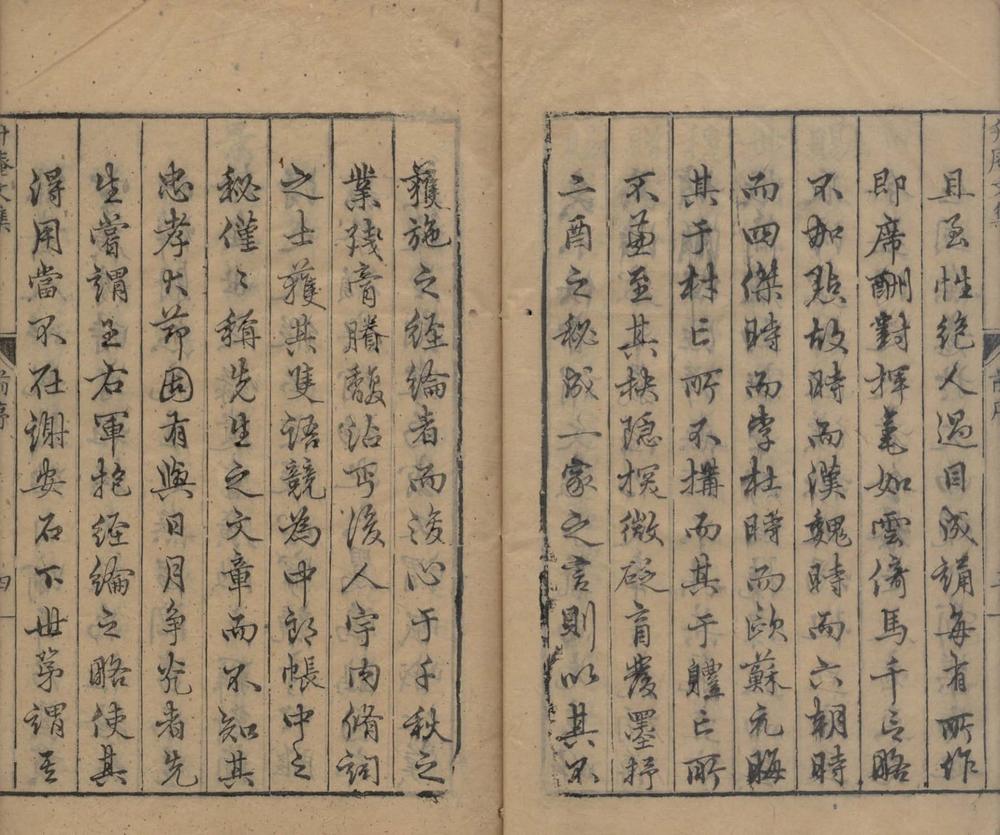 且至性絕人過目成誦每有所作
即席酬對揮毫如雲倚馬千言略
不加點故時而漢魏時而六朝時
而四傑時而李杜時而歐蘇元晦
其于材亡所不搆而其于體亡所
不兼至其抉隱探微砭肓發墨抒
二酉之秘成一家之言則以其不
獲施之經綸者而浚心于千秋之
業殘膏賸馥沾丐後人宇內脩詞
之士獲其隻語競為中郎帳中之
秘僅〻稱先生之文章而不知其
忠孝大節固有與日月爭光者先
生嘗謂王右軍抱經綸之略使其
得用當不在謝安石下世第謂其
升庵文集
前序
四